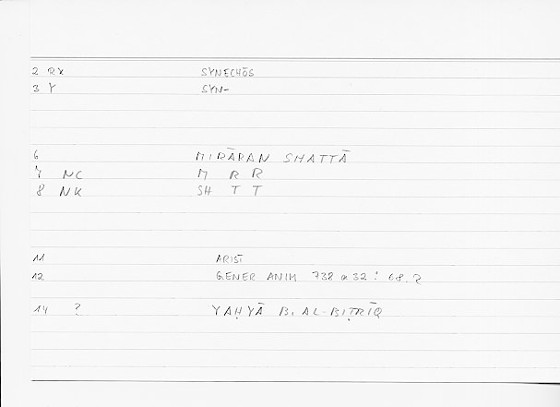 2 RX SYNECHŌS
3 Y SYN-
6 MIRĀRAN SHATTĀ
7 NC M R R
8 NK SH T T
11 ARIST
12 GENER ANIM 738 a 32 : 68.2
14 ? YAḤYĀ B. AL-BIṬRĪQ